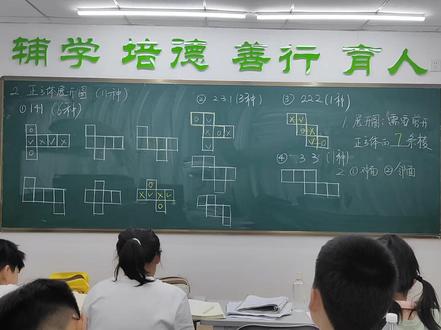 辅学 培德 善行 育人
2. 正方体展开图 (11种)
① 141 (6种)
② 231 (3种)
③ 222 (1种)
④ 33 (1种)
1. 展开图: 需要剪开
正方体的 7 条棱
2. ① 对面 ② 邻面